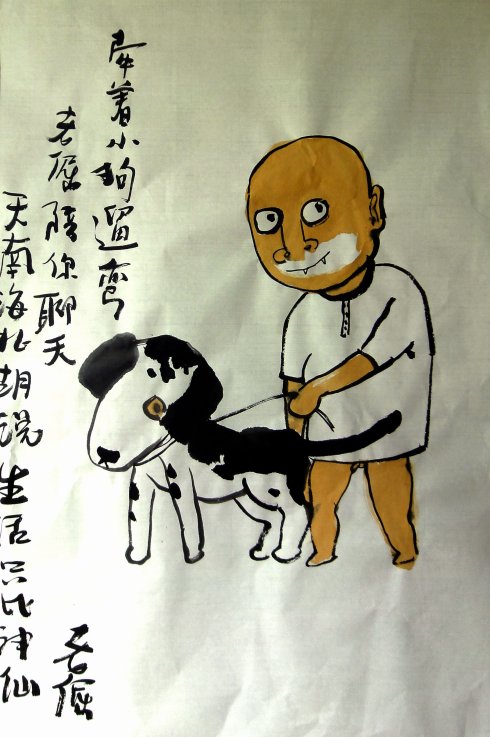 牵着小狗遛弯
老屈陪你聊天
天南海北胡说生活只比神仙
老屈